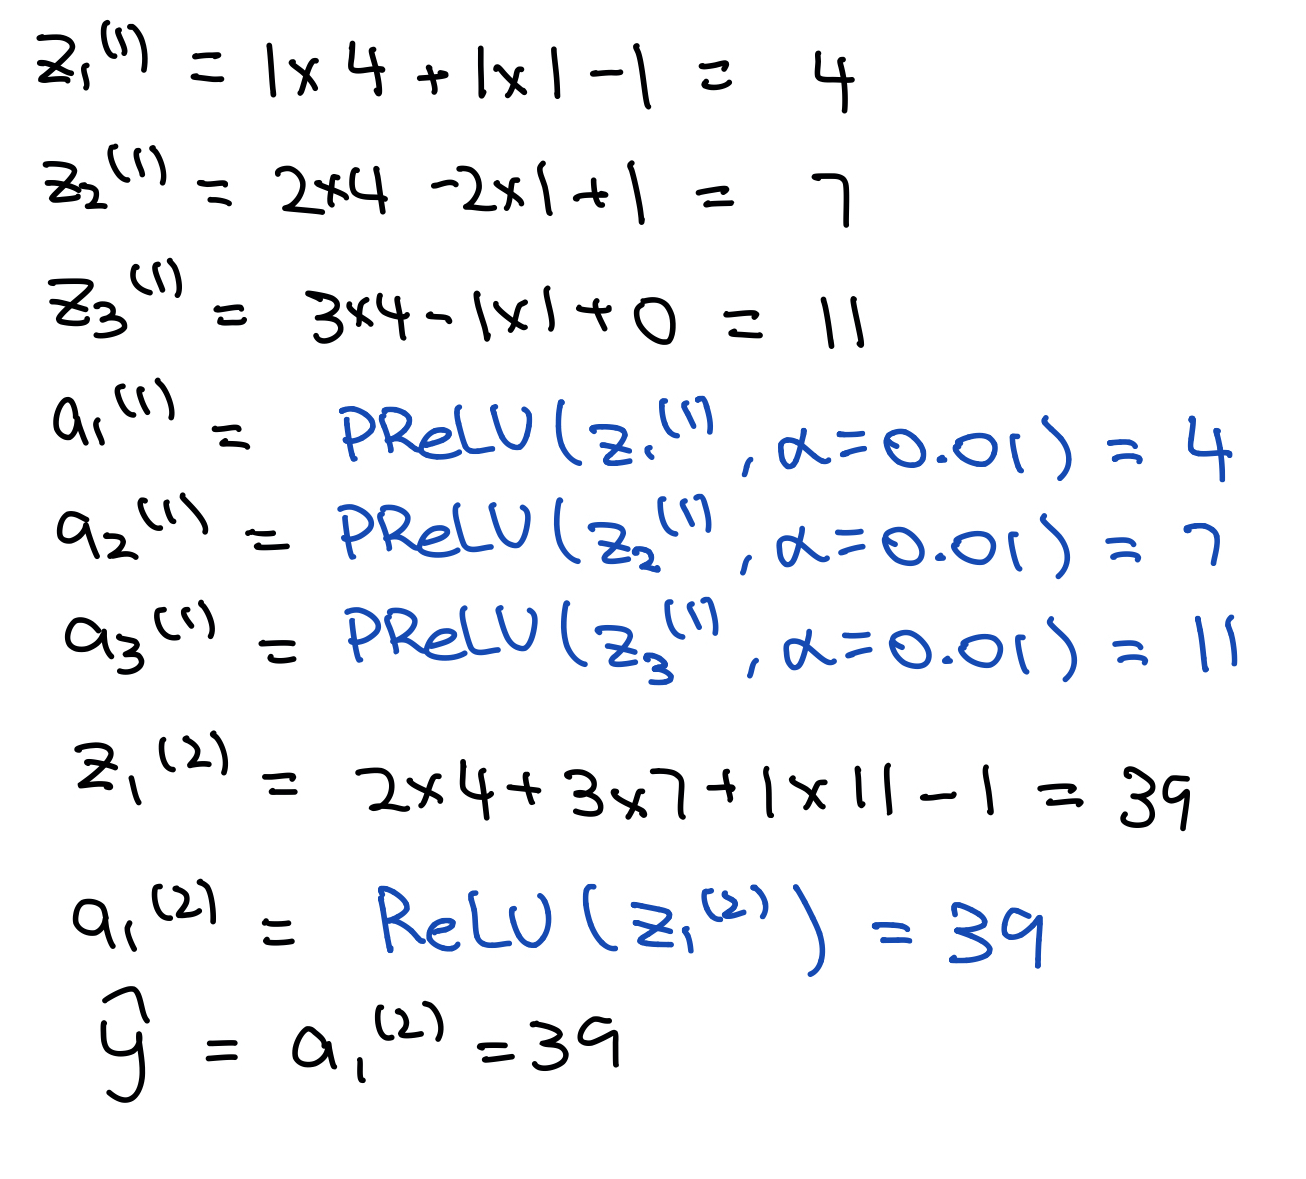 z₁⁽¹⁾ = 1x4 + 1x1 - 1 = 4
z₂⁽¹⁾ = 2x4 - 2x1 + 1 = 7
z₃⁽¹⁾ = 3x4 - 1x1 + 0 = 11
a₁⁽¹⁾ = PReLU(z₁⁽¹⁾, α=0.01) = 4
a₂⁽¹⁾ = PReLU(z₂⁽¹⁾, α=0.01) = 7
a₃⁽¹⁾ = PReLU(z₃⁽¹⁾, α=0.01) = 11
z₁⁽²⁾ = 2x4 + 3x7 + 1x11 - 1 = 39
a₁⁽²⁾ = ReLU(z₁⁽²⁾) = 39
ŷ = a₁⁽²⁾ = 39